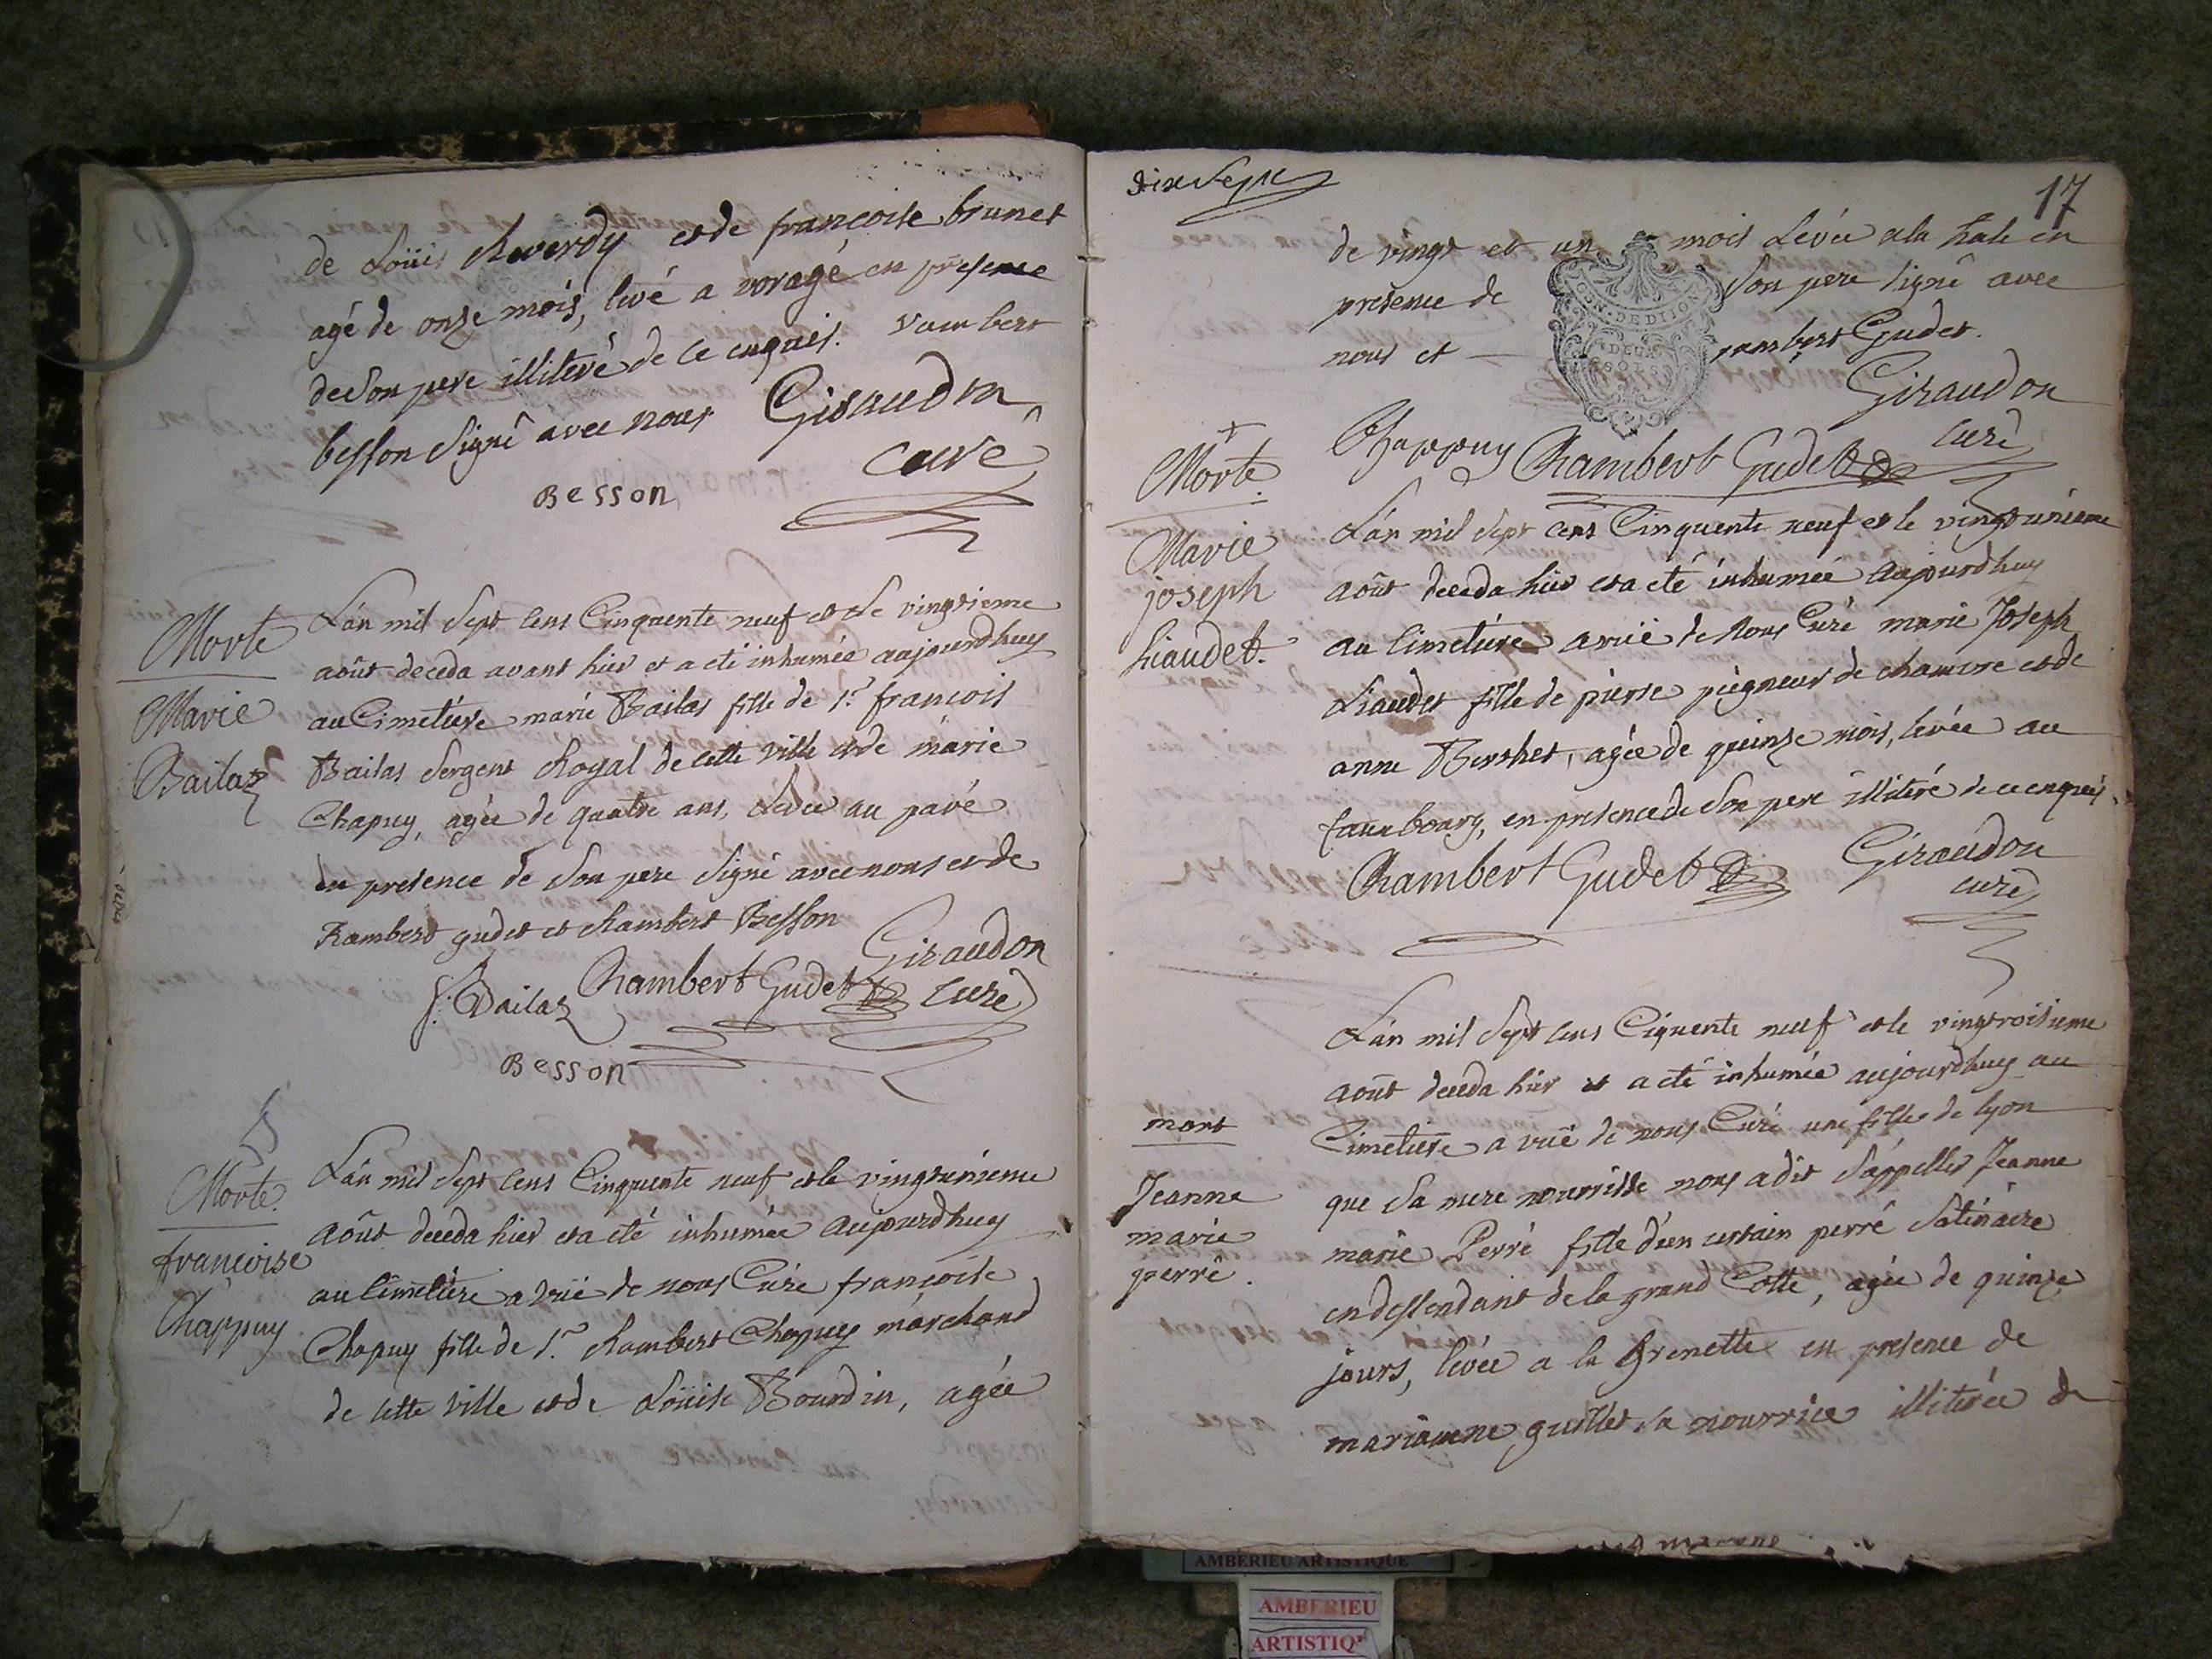 de Loüis Reverdy et de françoise brunet
agé de onze mois, levé a voragé en presence
de son pere illiteré de ce enquis. rambert
besson signé avec nous Giraudon
curé
Besson
Morte
Marie
Bailaz
L'an mil sept cens Cinquente neuf et le vingtieme
août deceda avant hier et a eté inhumée aujourdhuy
au Cimetiere marie Bailas fille de Sr. francois
Bailas sergent Royal de cette ville et de marie
Chapuy, agée de quatre ans, Levée au pavé
en presence de son pere signé avec nous et de
Rambert gudet et Rambert Besson
Giraudon
f. Bailaz Rambert Gudet curé
Besson
Morte.
francoise
Chappuy
L'an mil sept cens Cinquente neuf et le vingtunieme
août deceda hier et a eté inhumée aujourdhuy
au Cimetiere a vuë de nous Curé francoise
Chapuy fille de Sr. Rambert Chapuy marchand
de cette ville et de Loüise Bourdin, agée
dix sept
17
de vingt et un mois Levée a la hale en
presence de son pere signé avec
nous et rambert Gudet.
GEN. DE DIJON
DEUX
SOLS
Giraudon
Chappuy Rambert Gudet curé
Morte
Marie
joseph
Liaudet.
L'an mil sept cens Cinquente neuf et le vingtunieme
août deceda hier et a eté inhumée aujourdhuy
au Cimetiere a vuë de Nous Curé marie Joseph
Liaudet fille de pierre piegneur de chamvre et de
anne Berthet, agée de queinze mois, levée au
fauxbourg, en presence de son pere illiteré de ce enquis.
Rambert Gudet Giraudon
curé
mort
Jeanne
marie
perré.
L'an mil sept cens Ciquente neuf et le vingtroisieme
août deceda hier et a eté inhumée aujourdhuy au
Cimetiere a vuë de nous Curé une fille de lyon
que sa mere nourrisse nous a dit s'appeller Jeanne
marie Perré fille d'un certain perré satinaire
en dessendant de la grand Cotte, agée de quinze
jours, levée a la Grenette en presence de
marianne guillet sa nourrice illiterée de
AMBERIEU ARTISTIQUE
AMBERIEU
ARTISTIQ